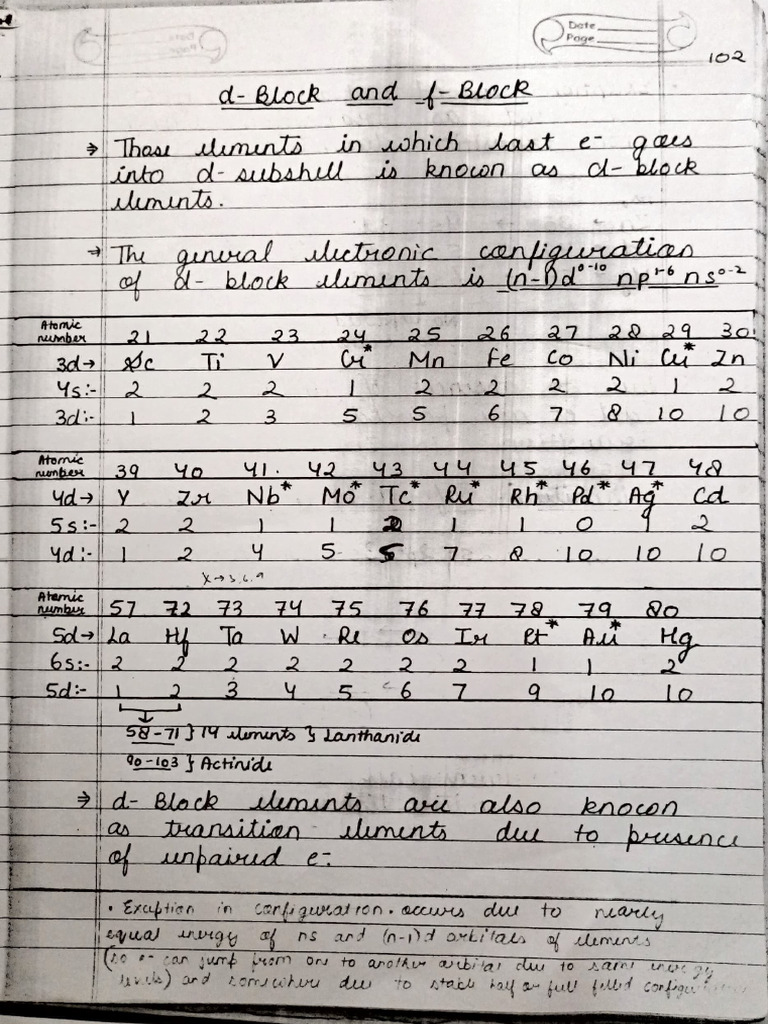 Date
Page
102
d-Block and f-Block
⇒ Those elements in which last e- goes
into d-subshell is known as d-block
elements.
→ The general electronic configuration
of d-block elements is (n-1)d⁰⁻¹⁰ np¹⁻⁶ ns⁰⁻²
Atomic number 21 22 23 24 25 26 27 28 29 30
3d→ Sc Ti V Cr* Mn Fe Co Ni Cu* Zn
4s:- 2 2 2 1 2 2 2 2 1 2
3d:- 1 2 3 5 5 6 7 8 10 10
Atomic number 39 40 41. 42 43 44 45 46 47 48
4d→ Y Zr Nb* Mo* Tc* Ru* Rh* Pd* Ag* Cd
5s:- 2 2 1 1 2 1 1 0 1 2
4d:- 1 2 4 5 5 7 8 10 10 10
Atomic number 57 72 73 74 75 76 77 78 79 80
5d→ La Hf Ta W Re Os Ir Pt* Au* Hg
6s:- 2 2 2 2 2 2 2 1 1 2
5d:- 1 2 3 4 5 6 7 9 10 10
58-71} 14 elements } Lanthanide
90-103} Actinide
⇒ d-Block elements are also known
as transition elements due to presence
of unpaired e-.
• Exception in configuration. occurs due to nearly
equal energy of ns and (n-1)d orbitals of elements
(so e- can jump from one to another orbital due to same energy
levels) and somewhere due to stable half or full filled